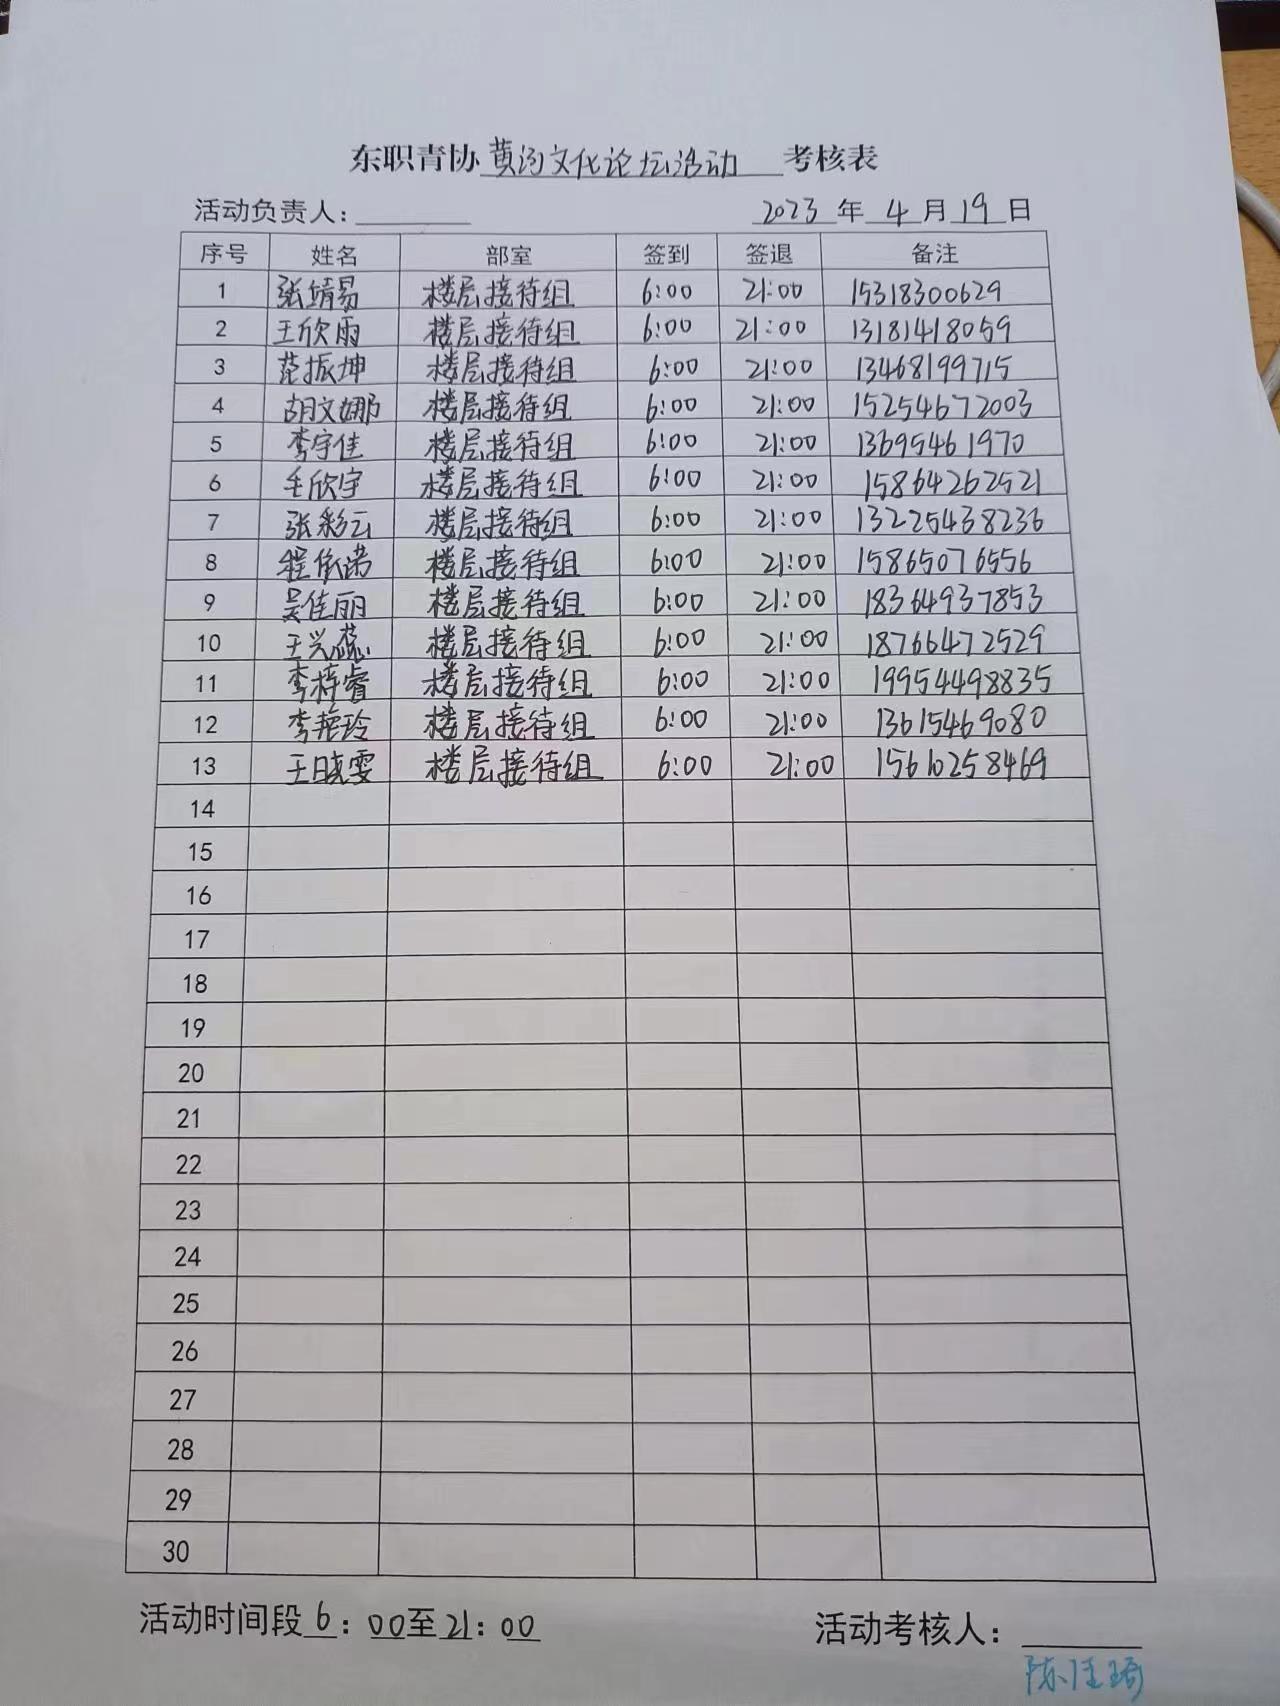 东职青协黄河文化论坛活动 考核表
活动负责人：
2023 年 4 月 19 日
序号 姓名 部室 签到 签退 备注
1 张婧易 楼层接待组 6:00 21:00 15318300629
2 王欣雨 楼层接待组 6:00 21:00 13181418059
3 范振坤 楼层接待组 6:00 21:00 13468199715
4 胡文娜 楼层接待组 6:00 21:00 15254672003
5 李宇佳 楼层接待组 6:00 21:00 13695461970
6 毛欣宇 楼层接待组 6:00 21:00 15864262521
7 张彩云 楼层接待组 6:00 21:00 13225438236
8 程依诺 楼层接待组 6:00 21:00 15865076556
9 吴佳丽 楼层接待组 6:00 21:00 18364937853
10 王兴蕊 楼层接待组 6:00 21:00 18766472529
11 李梓睿 楼层接待组 6:00 21:00 19954498835
12 李艳玲 楼层接待组 6:00 21:00 13615469080
13 王晓雯 楼层接待组 6:00 21:00 15610258469
14
15
16
17
18
19
20
21
22
23
24
25
26
27
28
29
30
活动时间段 6：00至21：00
活动考核人：
陈佳琦